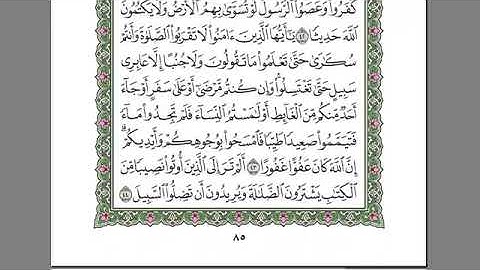 كَفَرُوا۟ وَعَصَوُا۟ ٱلرَّسُولَ لَوْ تُسَوَّىٰ بِهِمُ ٱلْأَرْضُ وَلَا يَكْتُمُونَ
ٱللَّهَ حَدِيثًا ٤٢ يَـٰٓأَيُّهَا ٱلَّذِينَ ءَامَنُوا۟ لَا تَقْرَبُوا۟ ٱلصَّلَوٰةَ وَأَنتُمْ
سُكَـٰرَىٰ حَتَّىٰ تَعْلَمُوا۟ مَا تَقُولُونَ وَلَا جُنُبًا إِلَّا عَابِرِى
سَبِيلٍ حَتَّىٰ تَغْتَسِلُوا۟ ۚ وَإِن كُنتُم مَّرْضَىٰٓ أَوْ عَلَىٰ سَفَرٍ أَوْ جَآءَ
أَحَدٌ مِّنكُم مِّنَ ٱلْغَآئِطِ أَوْ لَـٰمَسْتُمُ ٱلنِّسَآءَ فَلَمْ تَجِدُوا۟ مَآءً
فَتَيَمَّمُوا۟ صَعِيدًا طَيِّبًا فَٱمْسَحُوا۟ بِوُجُوهِكُمْ وَأَيْدِيكُمْ ۗ
إِنَّ ٱللَّهَ كَانَ عَفُوًّا غَفُورًا ٤٣ أَلَمْ تَرَ إِلَى ٱلَّذِينَ أُوتُوا۟ نَصِيبًا مِّنَ
ٱلْكِتَـٰبِ يَشْتَرُونَ ٱلضَّلَـٰلَةَ وَيُرِيدُونَ أَن تَضِلُّوا۟ ٱلسَّبِيلَ ٤٤
٨٥